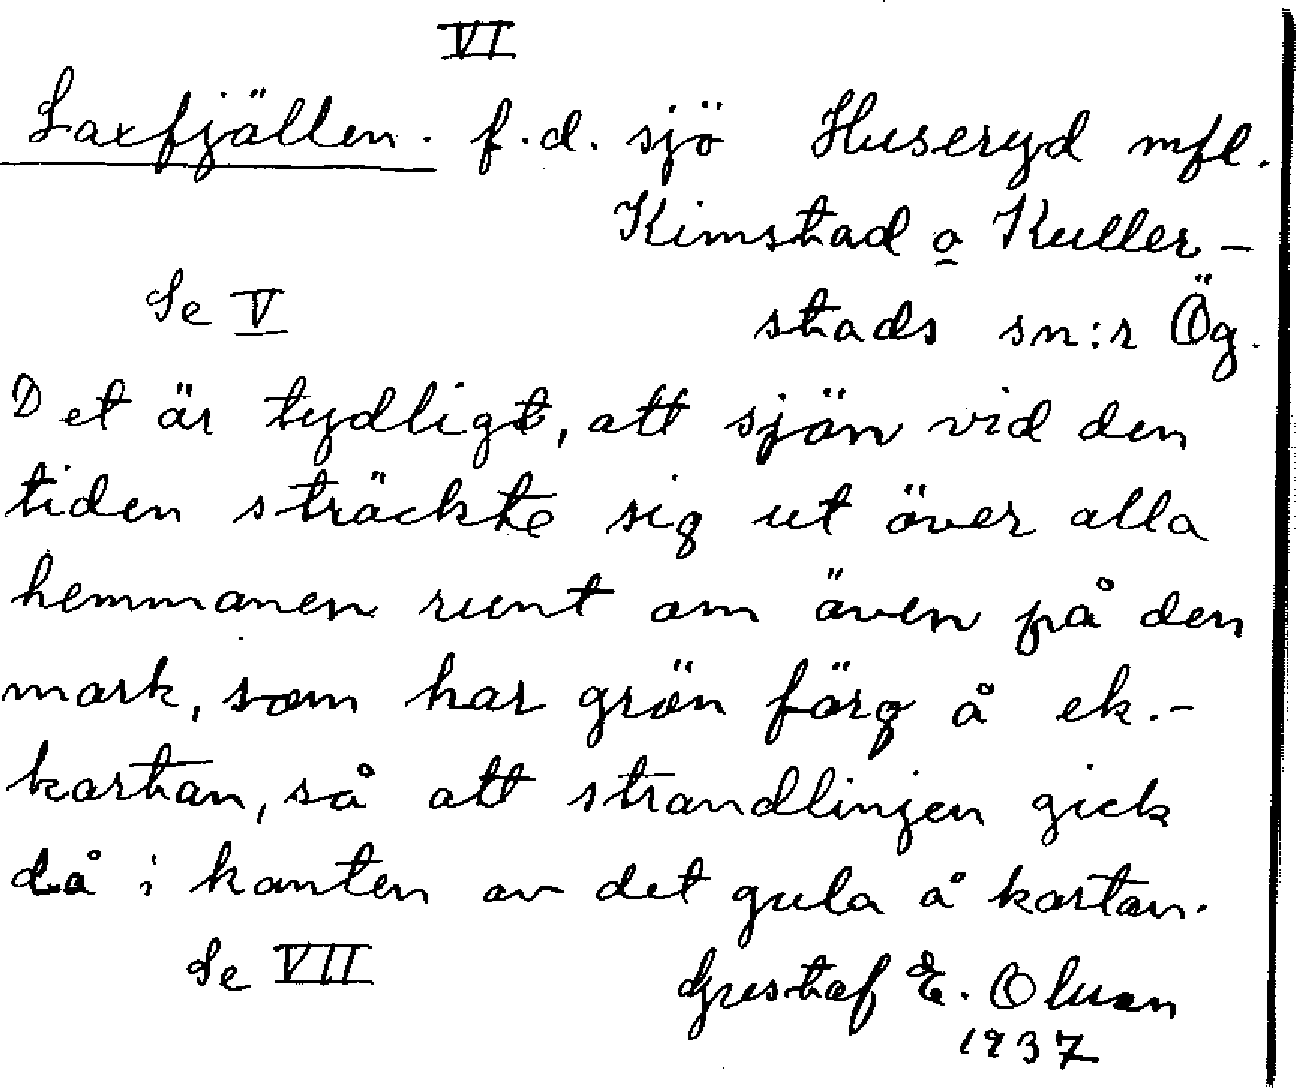 VI
Laxfjällen. f.d. sjö Huseryd mfl.
Kimstad o Kuller-
Se V stads sn:r Ög.
Det är tydligt, att sjön vid den
tiden sträckte sig ut över alla
hemmanen runt om även på den
mark, som har grön färg å ek.-
kartan, så att strandlinjen gick
då i kanten av det gula å kartan.
Se VII Gustaf E. Olsson
1937